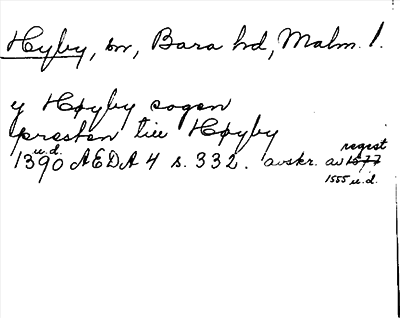 Hyby, sn, Bara hd, Malm. l.
y Høyby sogen
presten till Høyby
u.d.
1390 AEDA 4 s. 332. avskr. av 1577 regest
1555 u.d.